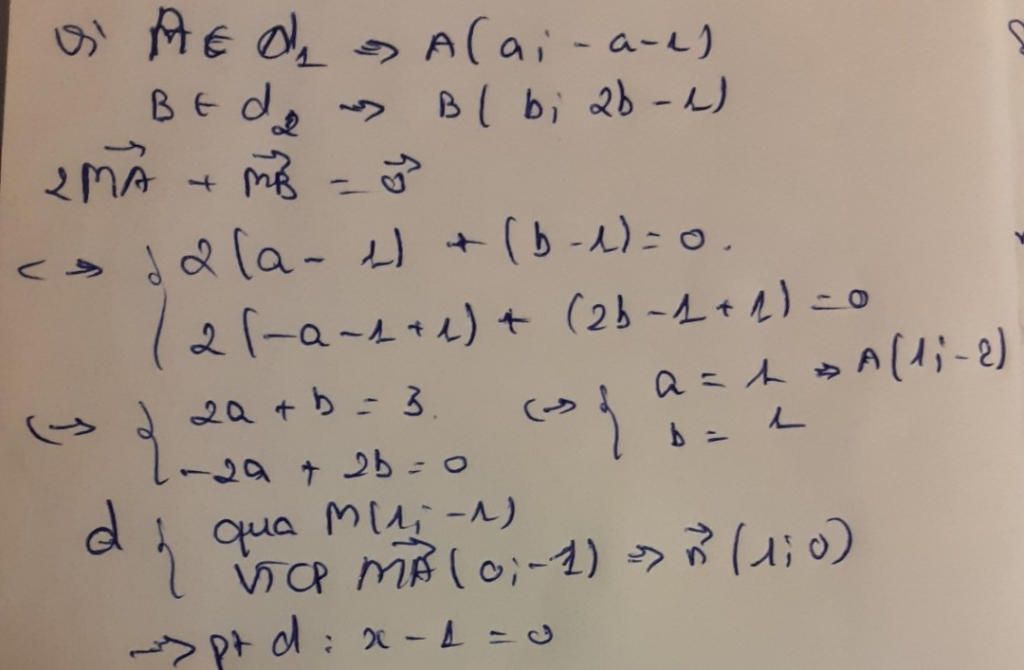 Vì A ∈ d₁ => A(a; -a-1)
B ∈ d₂ => B(b; 2b-1)
2MA→ + MB→ = 0→
<=> { 2(a-1) + (b-1) = 0.
2(-a-1+1) + (2b-1+1) = 0
<=> { 2a + b = 3. <=> { a = 1 => A(1;-2)
-2a + 2b = 0 b = 1
d { qua M(1;-1)
VTCP MA→(0;-1) => n→(1;0)
=> pt d: x - 1 = 0